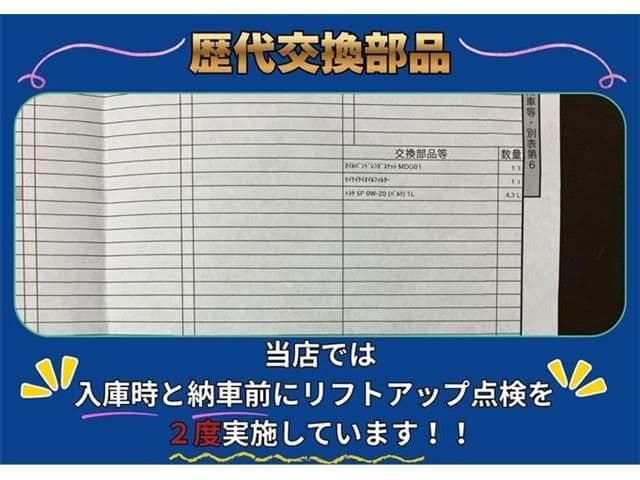 歴代交換部品
車等・別表第6
交換部品等 数量
オイルパンドレンガスケット MDG01 1
オイルフィルター 1
トヨタ SP 0W-20 (バルク) 1L 4.3 L
当店では
入庫時と納車前にリフトアップ点検を
２度実施しています！！